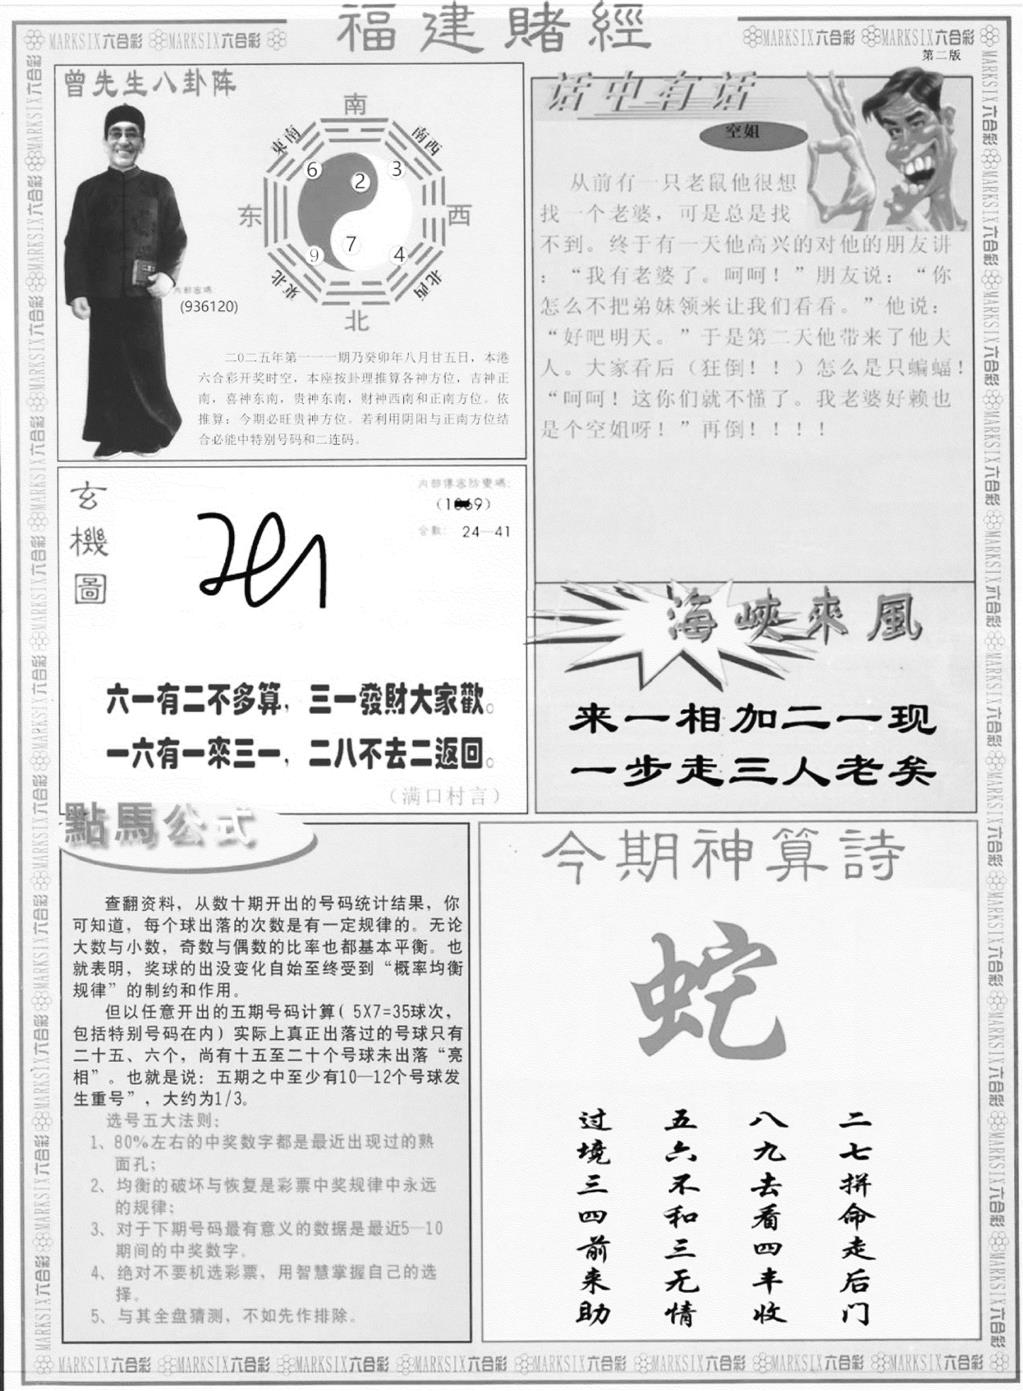 福建賭經
MARKSIX六合彩 MARKSIX六合彩
MARKSIX六合彩 MARKSIX六合彩
第二版
曾先生八卦阵
南
東南
南西
6
2
3
东
西
7
9
4
東北
北西
北
内部密碼:
(936120)
二0二五年第一一一期乃癸卯年八月廿五日，本港
六合彩开奖时空，本座按卦理推算各神方位，吉神正
南，喜神东南，贵神东南，财神西南和正南方位。依
推算；今期必旺贵神方位。若利用阴阳与正南方位结
合必能中特别号码和二连码。
话中有话
空姐
从前有一只老鼠他很想
找一个老婆，可是总是找
不到。终于有一天他高兴的对他的朋友讲
：“我有老婆了。呵呵！”朋友说：“你
怎么不把弟妹领来让我们看看。”他说：
“好吧明天。”于是第二天他带来了他夫
人。大家看后（狂倒！！）怎么是只蝙蝠！
“呵呵！这你们就不懂了。我老婆好赖也
是个空姐呀！”再倒！！！！
玄機圖
内部傳密防變碼:
合數: 24—41
六一有二不多算，三一發財大家歡。
一六有一來三一，二八不去二返回。
（满口村言）
海峽來風
来一相加二一现
一步走三人老矣
點馬公式
查翻资料，从数十期开出的号码统计结果，你
可知道，每个球出落的次数是有一定规律的。无论
大数与小数，奇数与偶数的比率也都基本平衡。也
就表明，奖球的出没变化自始至终受到“概率均衡
规律”的制约和作用。
但以任意开出的五期号码计算( 5X7=35球次，
包括特别号码在内）实际上真正出落过的号球只有
二十五、六个，尚有十五至二十个号球未出落“亮
相”。也就是说：五期之中至少有10—12个号球发
生重号”，大约为1/3。
选号五大法则：
1、80%左右的中奖数字都是最近出现过的熟
面孔；
2、均衡的破坏与恢复是彩票中奖规律中永远
的规律；
3、对于下期号码最有意义的数据是最近5—10
期间的中奖数字。
4、绝对不要机选彩票，用智慧掌握自己的选
择。
5、与其全盘猜测，不如先作排除。
今期神算詩
蛇
二七拼命走后门
八九去看四丰收
五六不和三无情
过境三四前来助
MARKSIX六合彩 MARKSIX六合彩 MARKSIX六合彩 MARKSIX六合彩 MARKSIX六合彩 MARKSIX六合彩 MARKSIX六合彩 MARKSIX六合彩